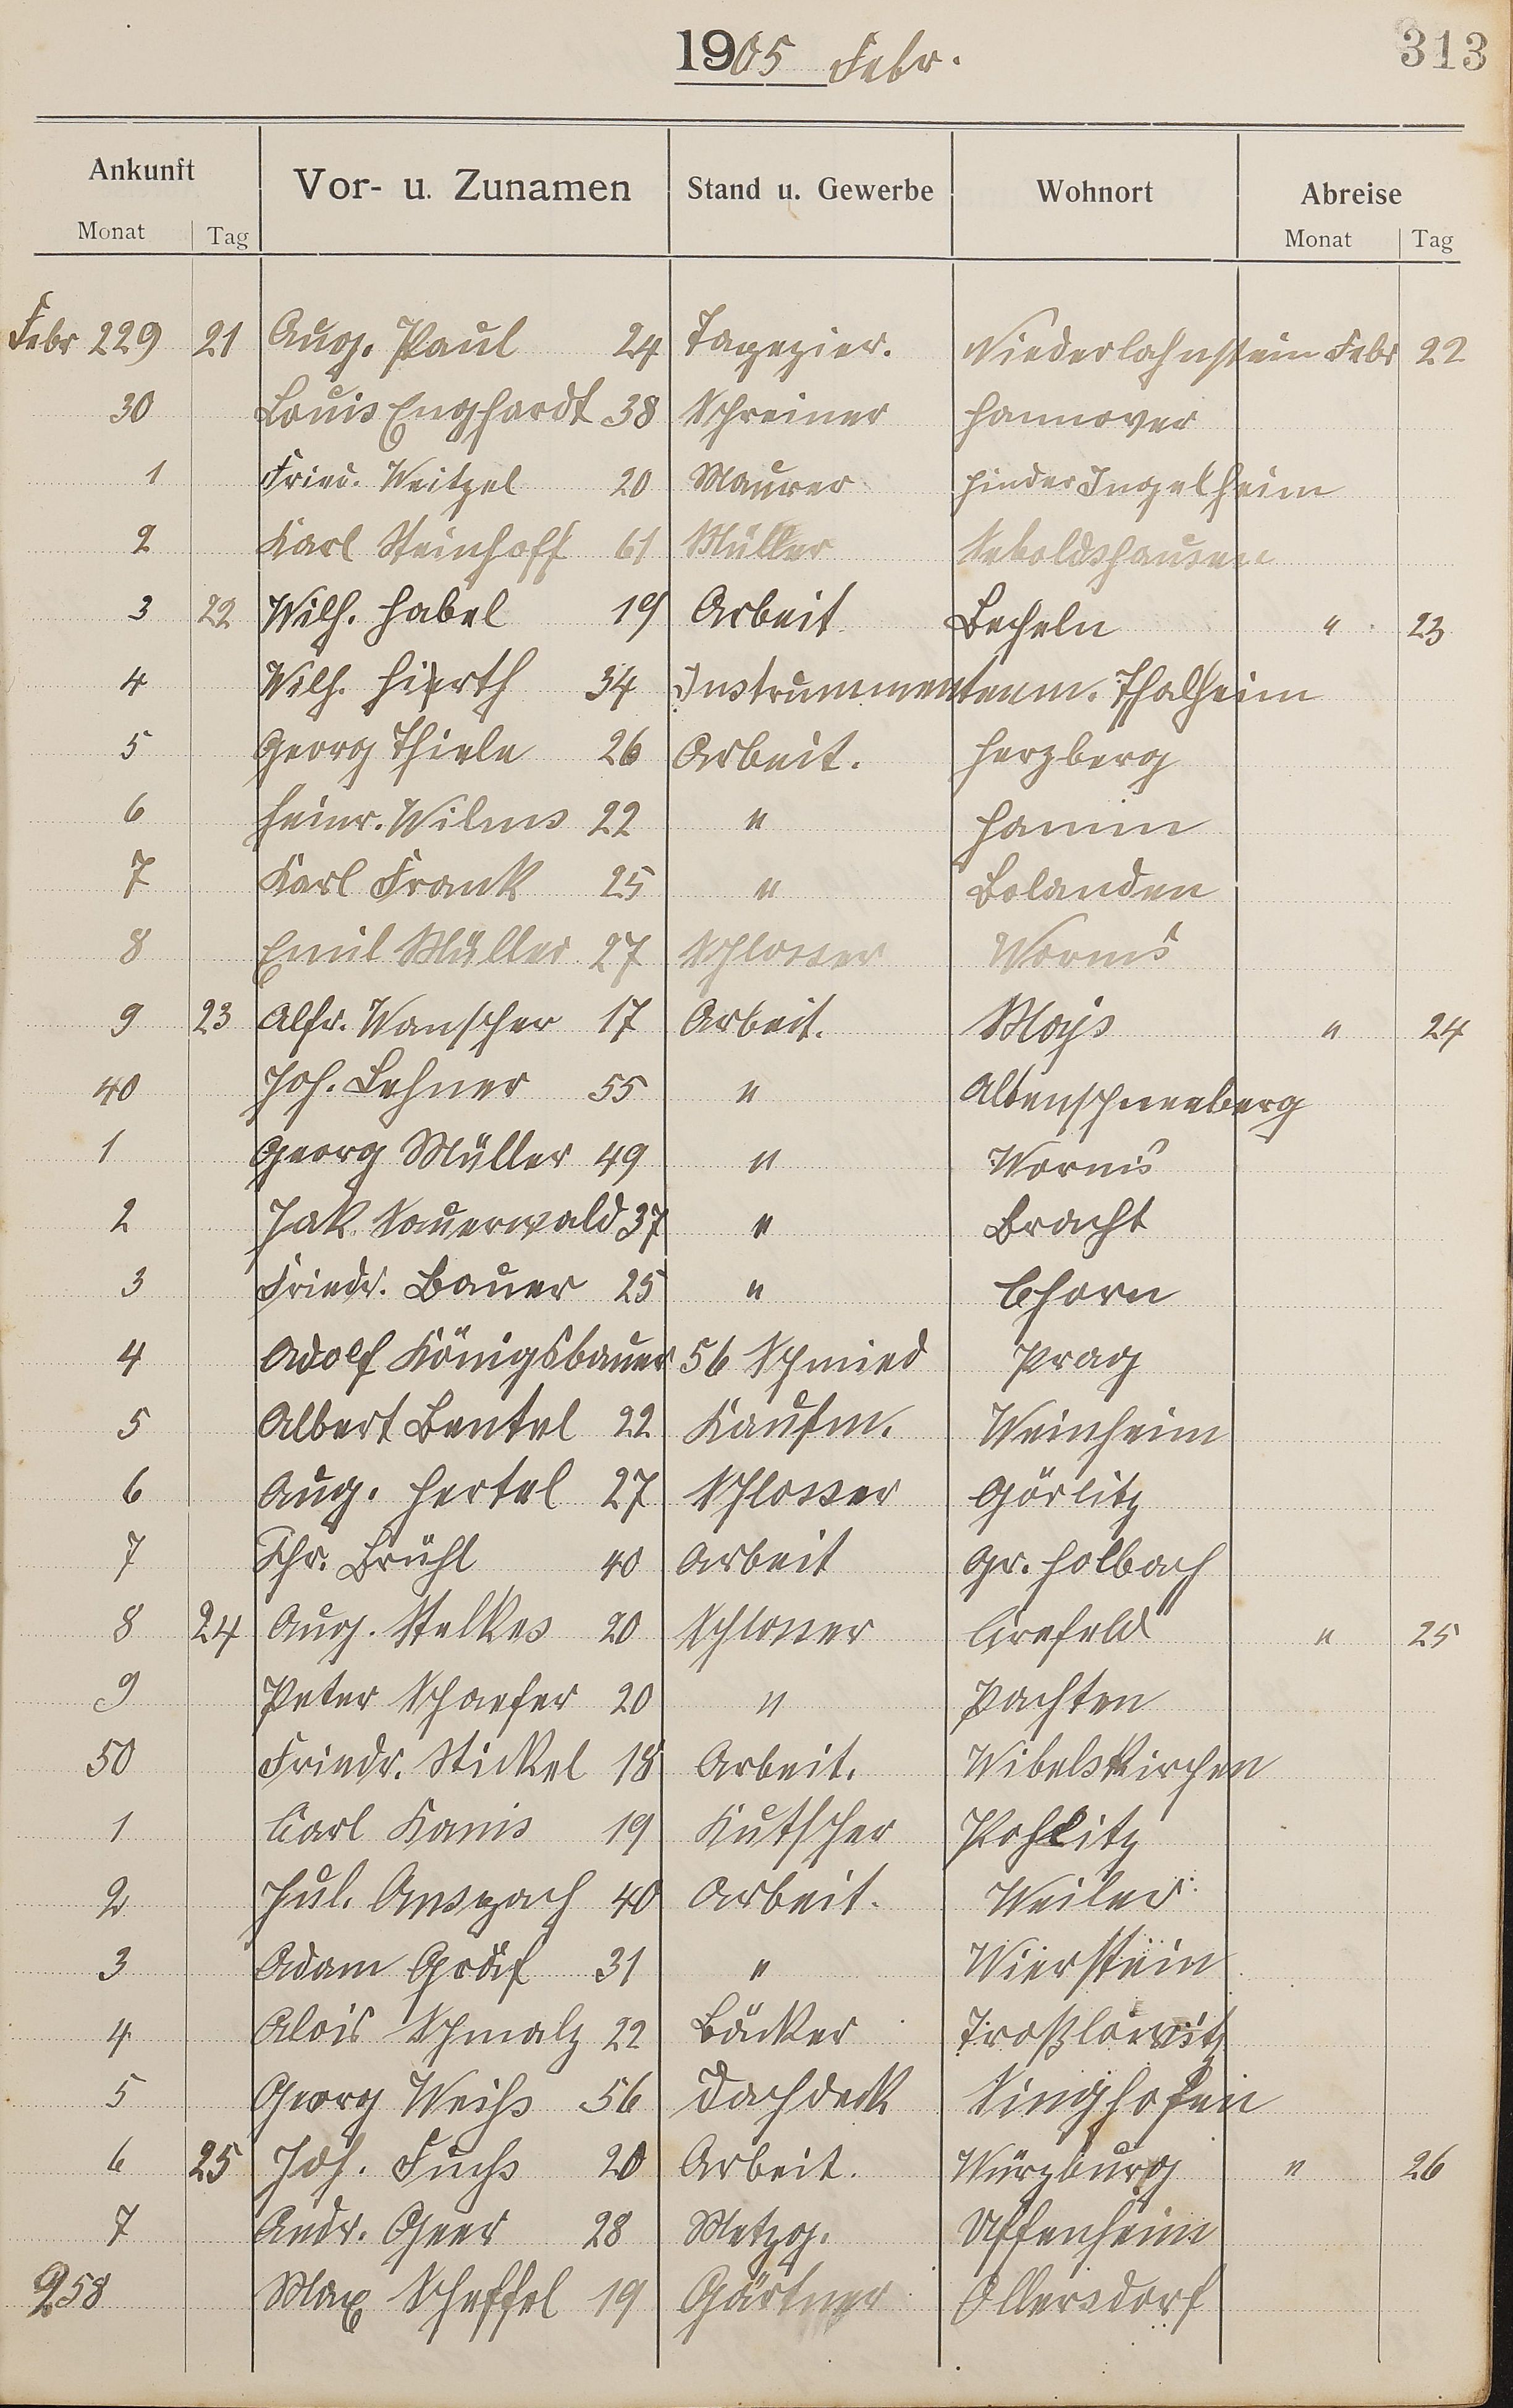 1905 Febr.
313
Ankunft Vor- u. Zunamen Stand u. Gewerbe Wohnort Abreise
Monat Tag Monat Tag
Febr 229 21 Aug. Paul 24 Tapezier. Niederlahnstein Febr 22
30 Louis Enghardt 38 Schreiner Hannover
1 Fried. Weitzel 20 Maurer Hinder Ingelheim
2 Karl Steinhoff 61 Müller Seboldshausen
3 22 Wilh. Habel 19 Arbeit Becheln " 23
4 Wilh. Hierth 34 Instrummentenm. Thalheim
5 Georg Thiele 26 Arbeit. Herzberg
6 Heinr. Wilms 22 " Hamm
7 Karl Frank 25 " Bolanden
8 Emil Müller 27 Schlosser Worms
9 23 Alfr. Wanscher 17 Arbeit. Moys " 24
40 Joh. Lehner 55 " Altenschneeberg
1 Georg Müller 49 " Worms
2 Jak. Sauerwald 37 " Bracht
3 Friedr. Bauer 25 " Thorn
4 Adolf Königsbauer 56 Schmied Prag
5 Albert Bentel 22 Kaufm. Weinheim
6 Aug. Hertel 27 Schlosser Görlitz
7 Chr. Brühl 40 Arbeit Gr. Holbach
8 24 Aug. Stelkes 20 Schlosser Crefeld " 25
9 Peter Schaefer 20 " Pachten
50 Friedr. Stickel 18 Arbeit. Wibelskirchen
1 Carl Kanis 19 Kutscher Pohlitz
2 Jul. Anspach 40 Arbeit. Weiler
3 Adam Gräf 31 " Wierstein
4 Alois Schmalz 22 Bäcker
5 Georg Weihs 56 Dachdeck Singhofen
6 25 Joh. Fuchs 20 Arbeit. Würzburg " 26
7 Andr. Geer 28 Metzg. Uffenheim
258 Max Scheffel 19 Gärtner Ollersdorf